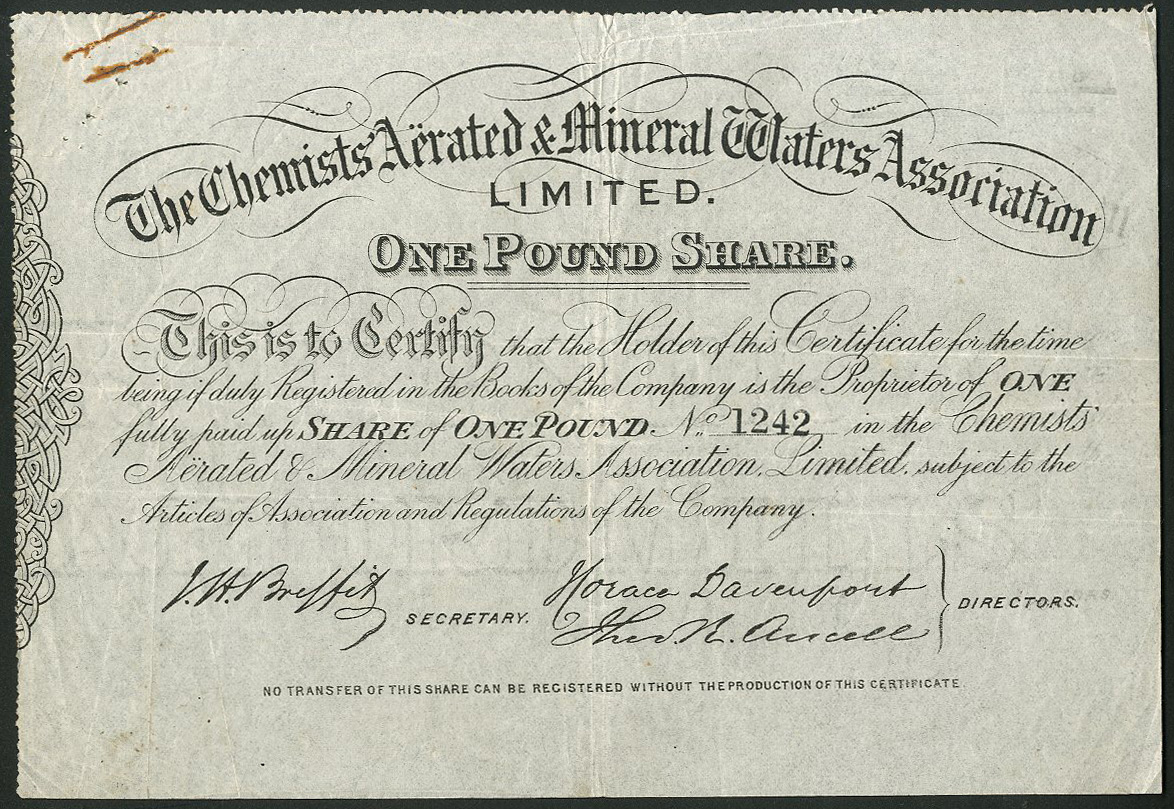 The Chemists' Aërated & Mineral Waters Association
LIMITED.
ONE POUND SHARE.
This is to Certify that the Holder of this Certificate for the time
being if duly Registered in the Books of the Company is the Proprietor of ONE
fully paid up SHARE of ONE POUND. No. 1242 in the Chemists'
Aërated & Mineral Waters Association, Limited, subject to the
Articles of Association and Regulations of the Company.
J. H. Breffit SECRETARY. Horace Davenport
Theo. R. Ancell DIRECTORS.
NO TRANSFER OF THIS SHARE CAN BE REGISTERED WITHOUT THE PRODUCTION OF THIS CERTIFICATE.